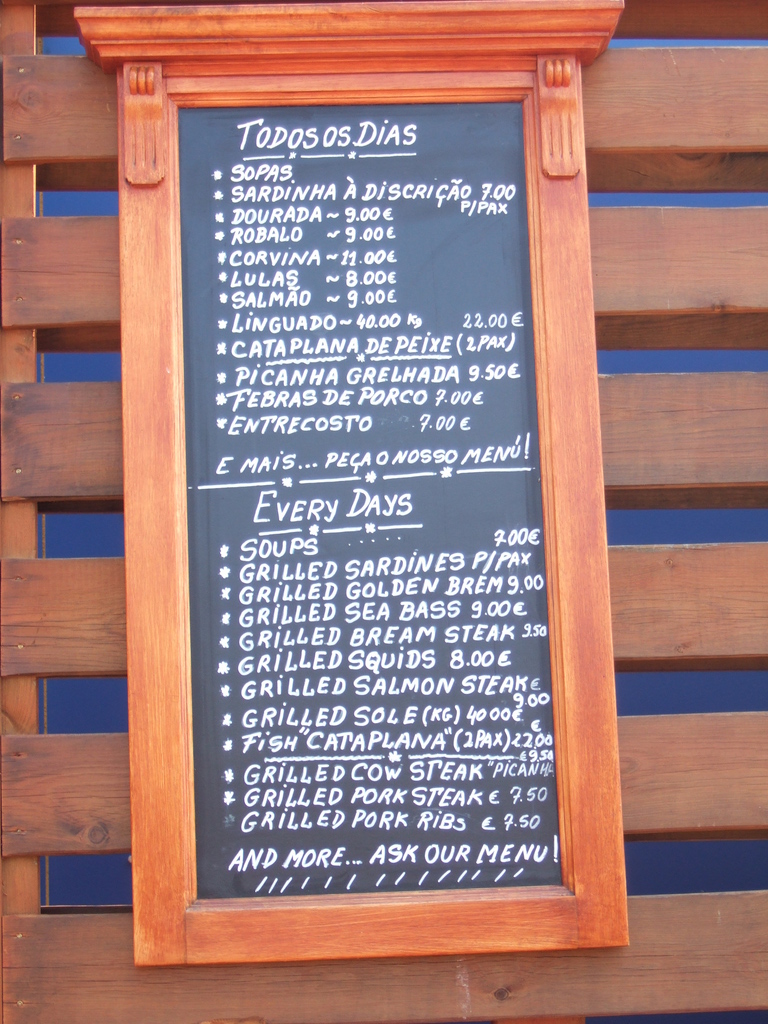 TODOS OS DIAS
* SOPAS.
* SARDINHA À DISCRIÇÃO 7.00
P/PAX
* DOURADA ~ 9.00€
* ROBALO ~ 9.00€
* CORVINA ~ 11.00€
* LULAS ~ 8.00€
* SALMÃO ~ 9.00€
* LINGUADO ~ 40.00 Kg 22.00€
* CATAPLANA DE PEIXE (2PAX)
* PICANHA GRELHADA 9.50€
* FEBRAS DE PORCO 7.00€
* ENTRECOSTO 7.00€
E MAIS... PEÇA O NOSSO MENÚ!
EVERY DAYS
* SOUPS ..... 7.00€
* GRILLED SARDINES P/PAX
* GRILLED GOLDEN BREM 9.00
* GRILLED SEA BASS 9.00€
* GRILLED BREAM STEAK 9.50
* GRILLED SQUIDS 8.00€
* GRILLED SALMON STEAK €
9.00
* GRILLED SOLE (KG) 40.00€
€
* FISH "CATAPLANA" (2PAX) 22.00
€9.50
* GRILLED COW STEAK "PICANHA
* GRILLED PORK STEAK € 7.50
GRILLED PORK RIBS € 7.50
AND MORE... ASK OUR MENU!